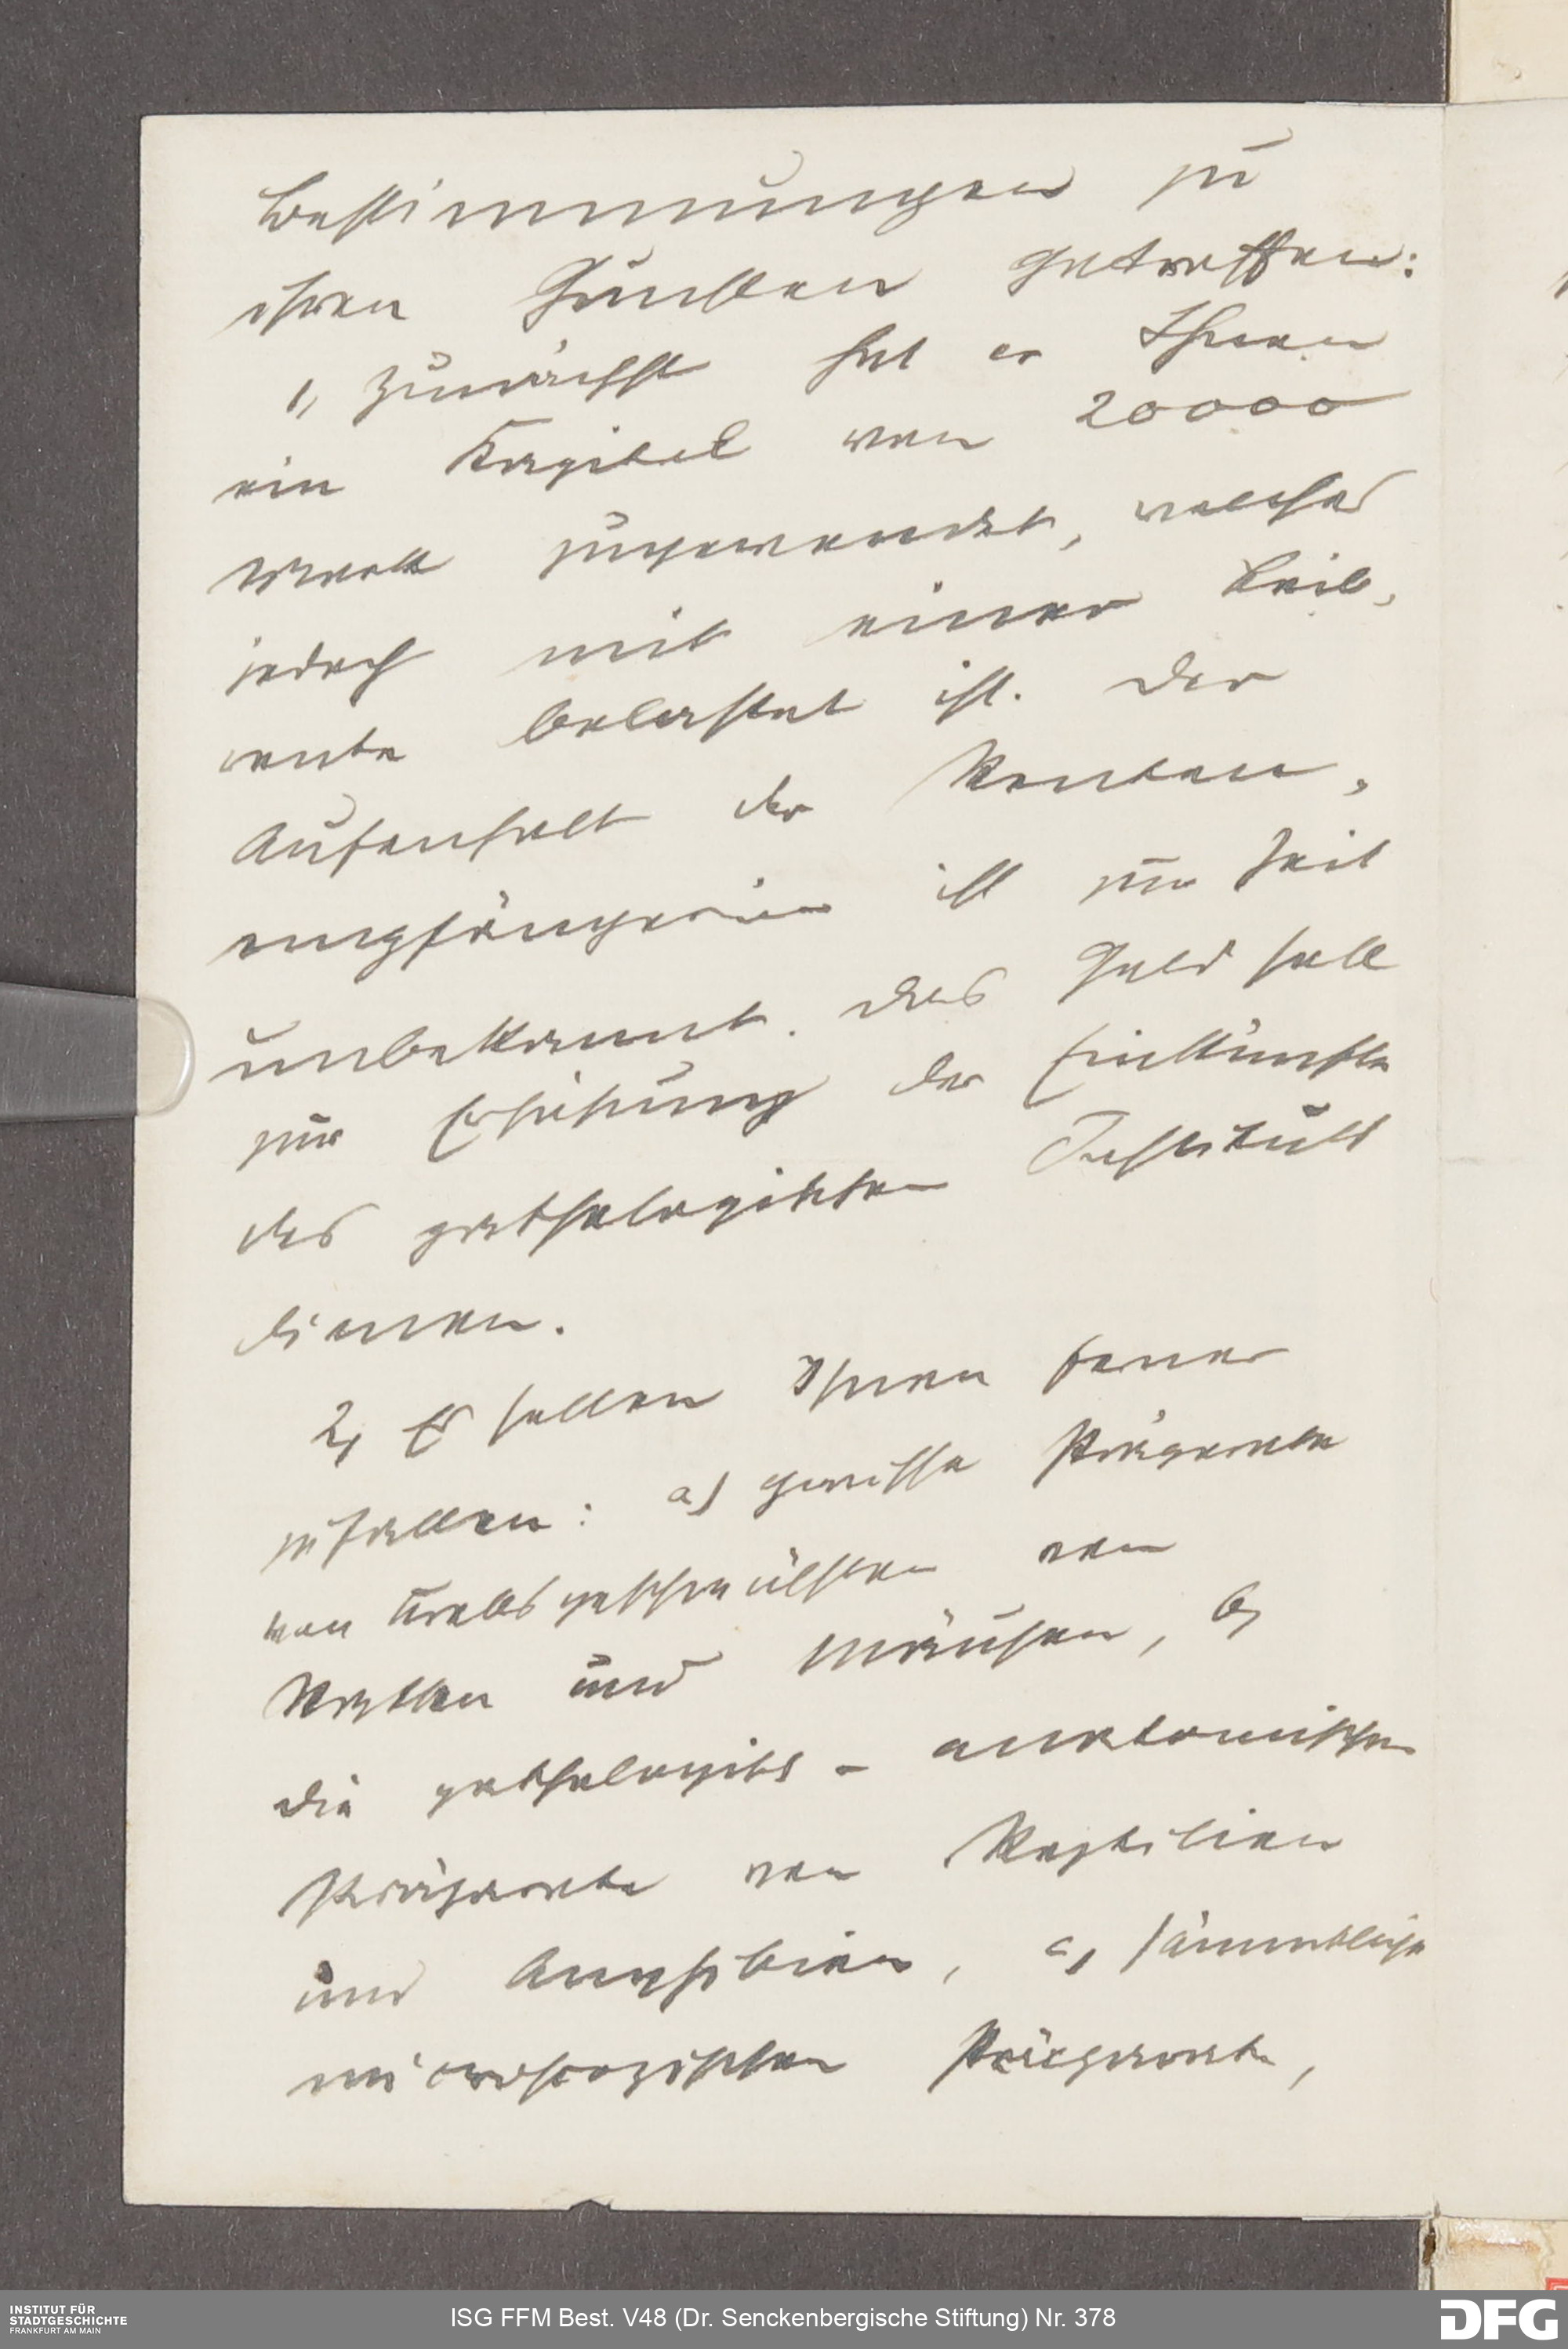 Bestimmungen zu
ihren Gunsten getroffen:
1, Zunächst hat er Ihnen
ein Kapital von 20000
Mark zugewendet, welches
jedoch mit einer Leib-
rente belastet ist. Der
Aufenthalt der Renten-
empfängerin ist zur Zeit
unbekannt. Das Geld soll
zur Erhöhung der Einkünfte
des pathologischen Instituts
dienen.
2, Es sollen Ihnen ferner
zufallen: a) gewisse Präparate
von Krebsgeschwülsten von
Ratten und Mäusen, b,
die pathologisch - anatomischen
Präparate von Reptilien
und Amphibien, c, sämmtliche
microscopischen Präparate,
INSTITUT FÜR
STADTGESCHICHTE
FRANKFURT AM MAIN
ISG FFM Best. V48 (Dr. Senckenbergische Stiftung) Nr. 378
DFG